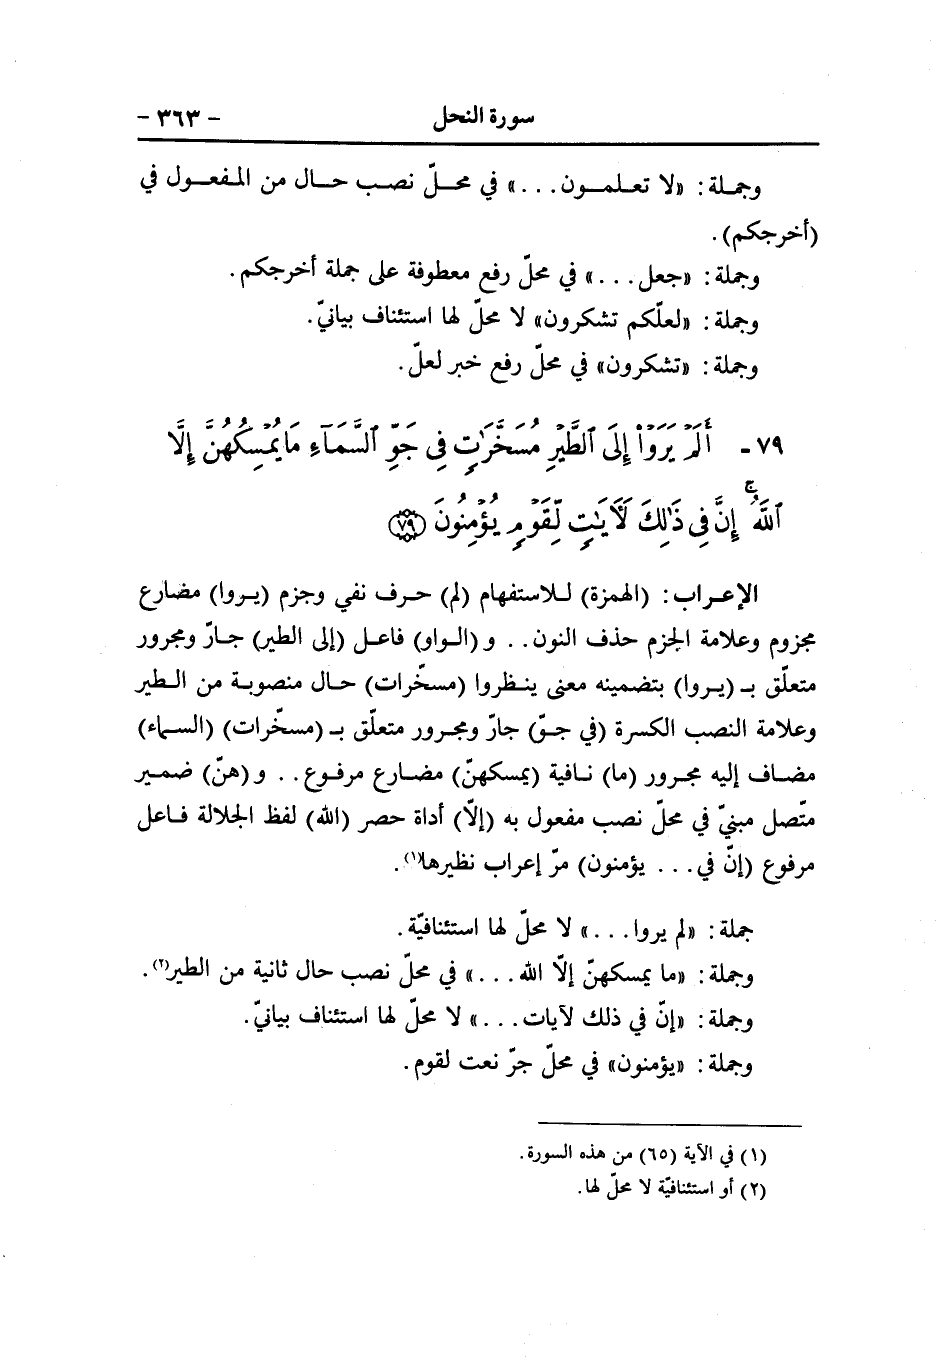 سورة النحل - ٣٦٣ -
وجملة: «لا تعلمون...» في محلّ نصب حال من المفعول في
(أخرجكم).
وجملة: «جعل...» في محلّ رفع معطوفة على جملة أخرجكم.
وجملة: «لعلّكم تشكرون» لا محلّ لها استئناف بيانيّ.
وجملة: «تشكرون» في محلّ رفع خبر لعلّ.
٧٩ - أَلَمْ يَرَوْا۟ إِلَى ٱلطَّيْرِ مُسَخَّرَٰتٍ فِى جَوِّ ٱلسَّمَآءِ مَا يُمْسِكُهُنَّ إِلَّا
ٱللَّهُ ۚ إِنَّ فِى ذَٰلِكَ لَـَٔايَٰتٍ لِّقَوْمٍ يُؤْمِنُونَ ﴿٧٩﴾
الإعراب: (الهمزة) للاستفهام (لم) حرف نفي وجزم (يروا) مضارع
مجزوم وعلامة الجزم حذف النون.. و (الواو) فاعل (إلى الطير) جارّ ومجرور
متعلّق بـ (يروا) بتضمينه معنى ينظروا (مسخّرات) حال منصوبة من الطير
وعلامة النصب الكسرة (في جوّ) جارّ ومجرور متعلّق بـ (مسخّرات) (السماء)
مضاف إليه مجرور (ما) نافية (يمسكهنّ) مضارع مرفوع.. و (هنّ) ضمير
متّصل مبنيّ في محلّ نصب مفعول به (إلّا) أداة حصر (الله) لفظ الجلالة فاعل
مرفوع (إنّ في... يؤمنون) مرّ إعراب نظيرها(١).
جملة: «لم يروا...» لا محلّ لها استئنافيّة.
وجملة: «ما يمسكهنّ إلّا الله...» في محلّ نصب حال ثانية من الطير(٢).
وجملة: «إنّ في ذلك لآيات...» لا محلّ لها استئناف بيانيّ.
وجملة: «يؤمنون» في محلّ جرّ نعت لقوم.
(١) في الآية (٦٥) من هذه السورة.
(٢) أو استئنافيّة لا محلّ لها.